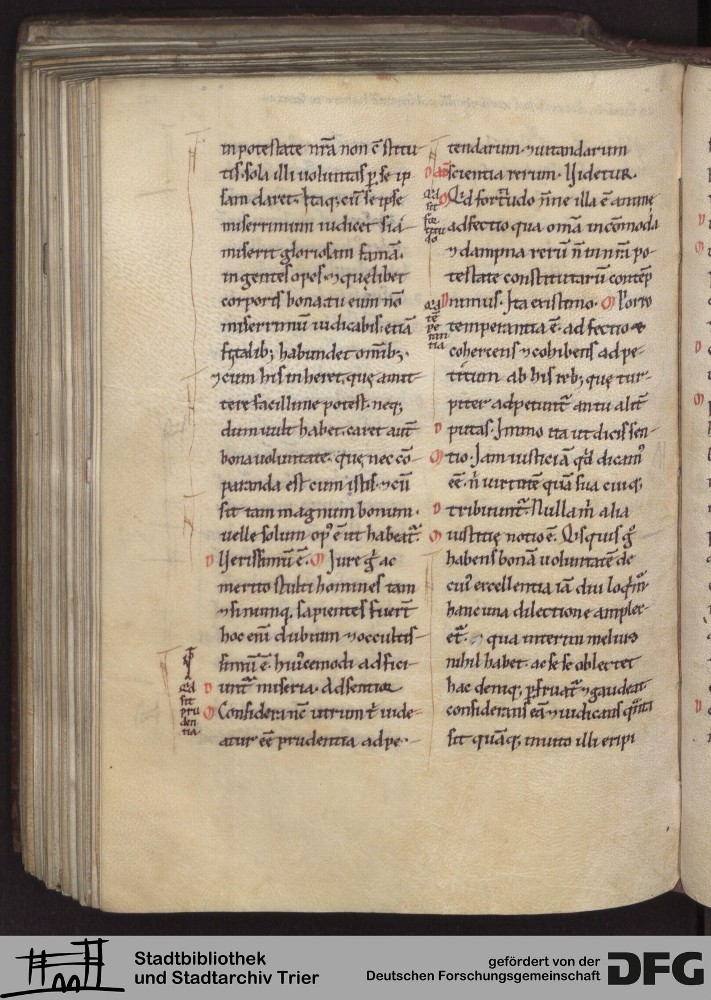 in potestate nr̄a non ē stitu
tis. sola illi uoluntas p̱ se ip
sam daret. Itaq; cū se ipse
miserrimum iudicet si a-
miserit gloriosam famā.
ingentes opes. ⁊ quęlibet
corporis bona. tu eum nō
miserrimū iudicabis. etiā
si talib; habundet omib;.
⁊ cum his inheret. quę amit-
tere facillime potest. neq;
dum uult habet. caret aut̄
bona uoluntate. quę nec cō-
paranda est cum istis. ⁊ cū
sit tam magnum bonum.
uelle solum op' ē ut habeat̄.
D Uerissimū ē. M Jure g̊ ac
merito stulti homines tam
&si nunq; sapientes fuer̄t
hoc eni dubium ⁊ occultis-
simū ē. hui'cemodi adfici-
D unt̄ miseria. Adsentior
M Considera nc̄ utrum t̄ uide-
atur ēē prudentia adpe-
Qd
sit
pru
den
tia.
tendarum ⁊ uitandarum
D scientia rerum. Uidetur.
M Qd fortitudo n̄ne illa ē animę
adfectio qua om̄a incōmoda
⁊ dampna rerū n̄ in nr̄a po-
testate constitutarū contēp
D nimus. Ita existimo. M Porro
temperantia ē. adfectio
cohercens ⁊ cohibens adpe-
titum ab his reb; quę tur-
piter adpetunt̄. an tu alit̄
D putas. Immo ita ut dicis sen-
M tio. Jam iusticiā qd dicam'
ēē. n̄ uirtutē qua sua cuiq;
D tribuunt̄. Nulla m̄ alia
M iustitię notio ē. Quisquis g̊
habens bonā uoluntatē de
cui' excellentia iā diu loqm̄r
hanc una dilectione amplec-
et̄. qua interim melius
nihil habet. ac se se oblectet
hac deniq; p̱fruat̄ ⁊ gaudeat.
considerans eā ⁊ iudicans quāta
sit quāq; inuito illi eripi
Qd
sit
for
titu
do
Qd
tē
pe
ran
tia
Stadtbibliothek
und Stadtarchiv Trier
gefördert von der
Deutschen Forschungsgemeinschaft
DFG